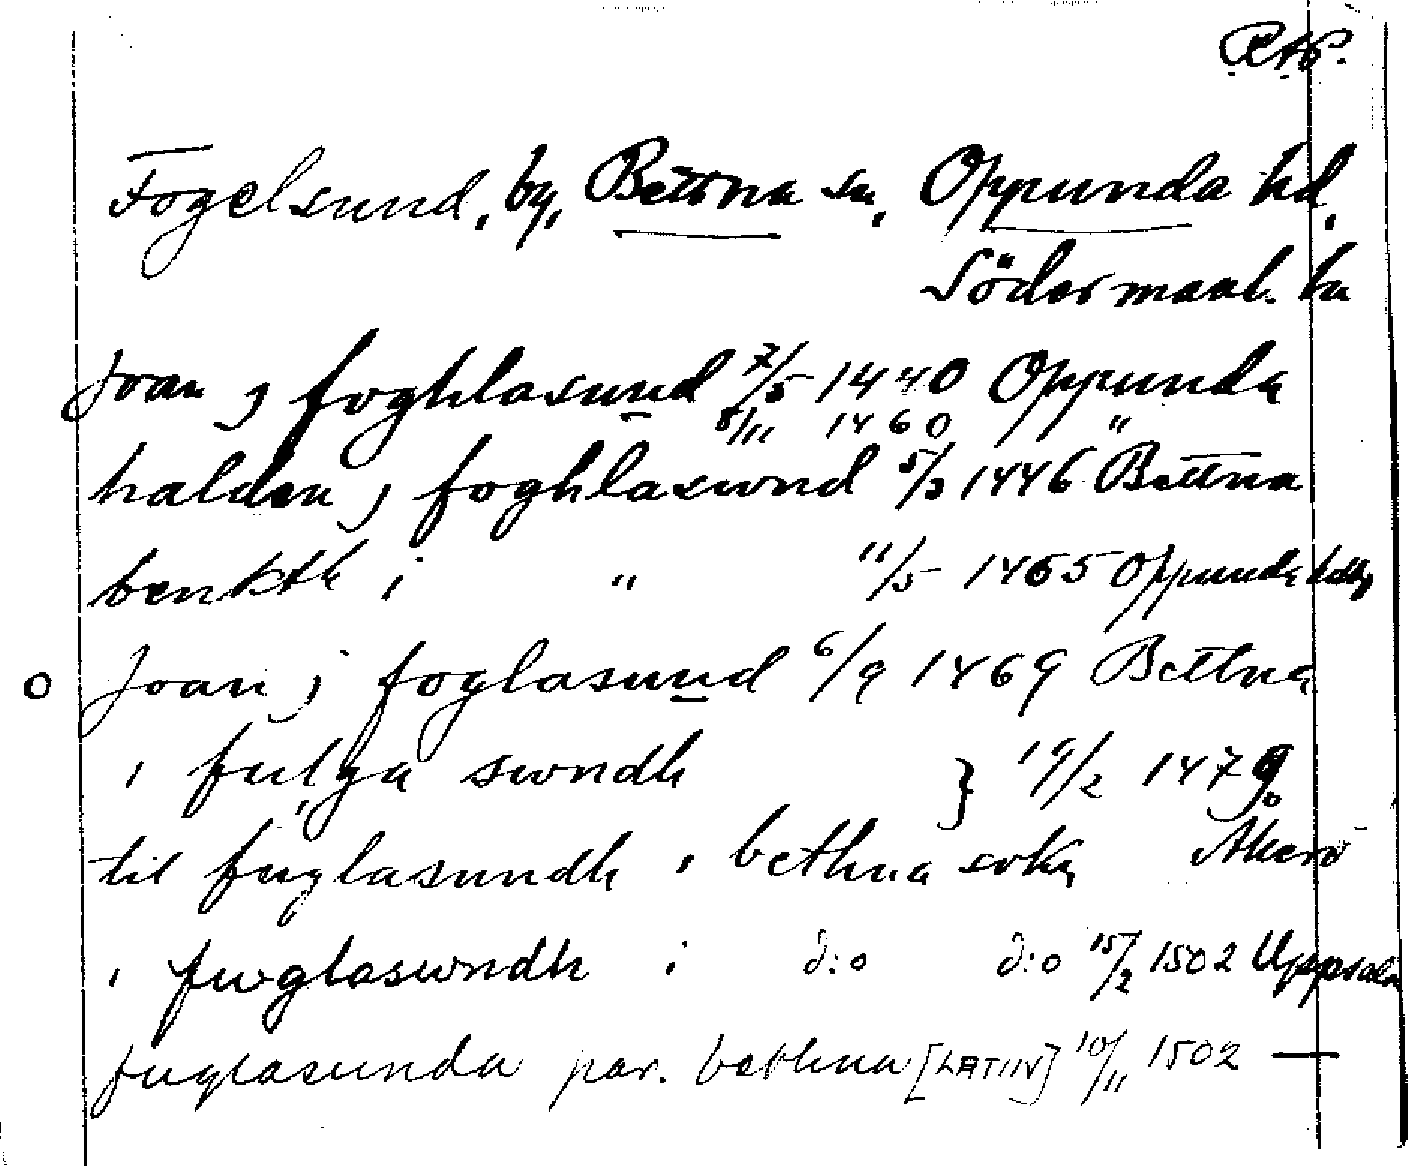 RAP.
Fogelsund, by, Bettna sn, Oppunda hd,
Södermanl. län
Joan j foghlasund 7/5 1440 Oppunda
8/11 1460 "
haldan j foghlaswnd 5/3 1446 Bettna
benkth i " 11/5 1465 Oppunda
o Joan j foglasund 6/9 1469 Bettna
i fulga swndh } 19/2 1479
til fuglasundh i bethna sokn Åkerö
i fwglaswndh i d:o d:o 15/2 1502 Uppsala
fuglasunda par. bethna [LATIN] 10/11 1502 —